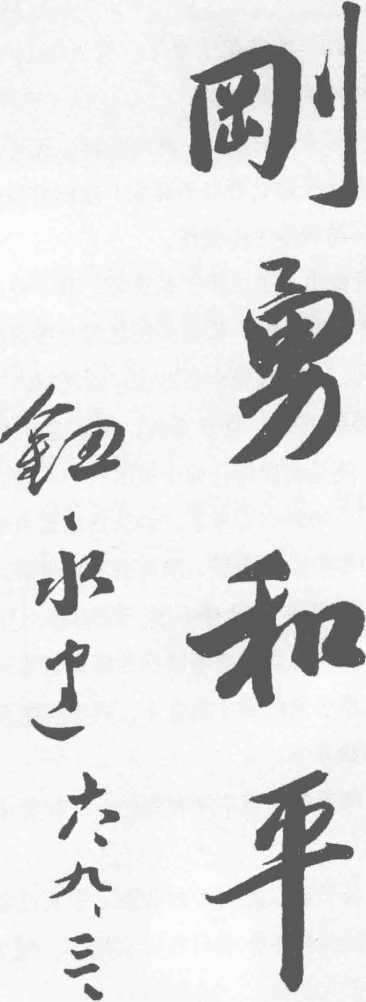 剛勇和平
鈕永建 六、九、三、